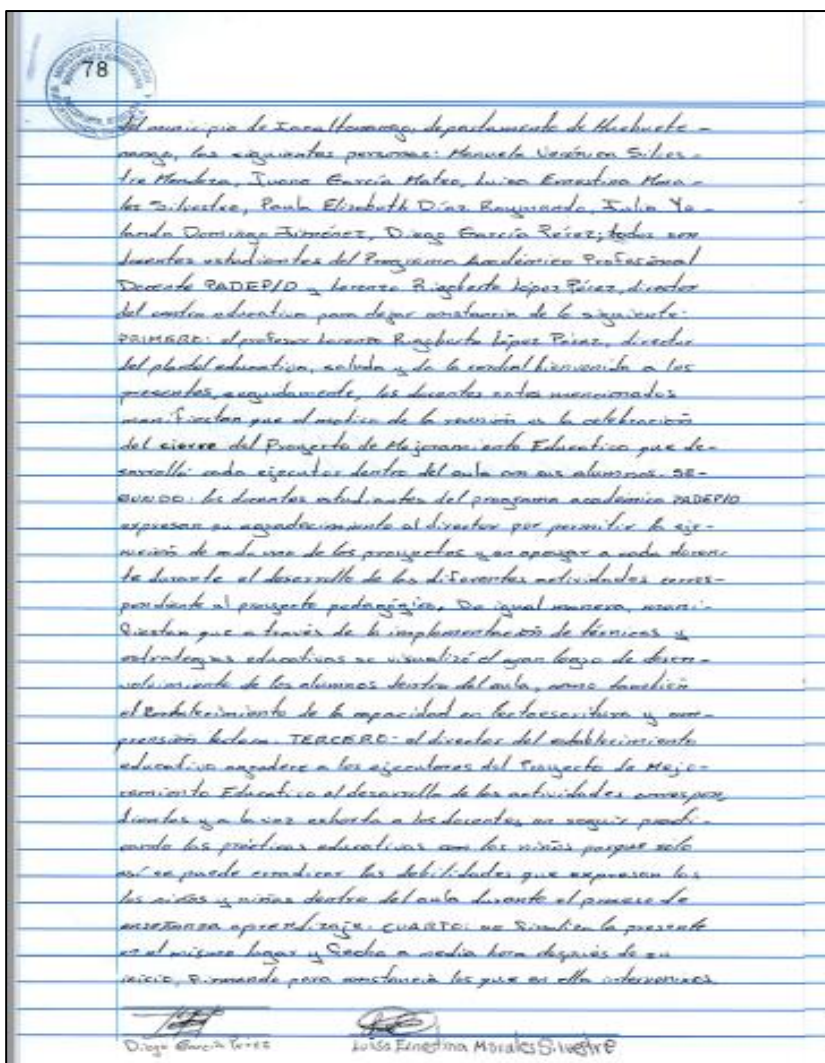 78
del municipio de Jacaltenango, departamento de Huehuete-
nango, las siguientes personas: Manuela Verónica Silves-
tre Mendoza, Juana García Mateo, Luisa Ernestina Mora-
les Silvestre, Paula Elizabeth Díaz Raymundo, Julia Yo-
landa Domingo Jiménez, Diego García Pérez; todos son
docentes estudiantes del Programa Académico Profesional
Docente PADEP/D y Lorenzo Rigoberto López Pérez, director
del centro educativo para dejar constancia de lo siguiente:
PRIMERO: el profesor Lorenzo Rigoberto López Pérez, director
del plantel educativo, saluda y da la cordial bienvenida a los
presentes, seguidamente, los docentes antes mencionados
manifiestan que el motivo de la reunión es la celebración
del cierre del Proyecto de Mejoramiento Educativo que de-
sarrolló cada ejecutor dentro del aula con sus alumnos. SE-
GUNDO: los docentes estudiantes del programa académico PADEP/D
expresan su agradecimiento al director por permitir la eje-
cución de cada uno de los proyectos y en apoyar a cada docen-
te durante el desarrollo de las diferentes actividades corres-
pondiente al proyecto pedagógico. De igual manera, mani-
fiestan que a través de la implementación de técnicas y
estrategias educativas se visualizó el gran logro de desen-
volvimiento de los alumnos dentro del aula, como también
el fortalecimiento de la capacidad en lectoescritura y com-
prensión lectora. TERCERO: el director del establecimiento
educativo agradece a los ejecutores del Proyecto de Mejo-
ramiento Educativo el desarrollo de las actividades correspon
dientes y a la vez exhorta a los docentes en seguir practi-
cando las prácticas educativas con los niños porque solo
así se puede erradicar las debilidades que expresan los
los niños y niñas dentro del aula durante el proceso de
enseñanza aprendizaje. CUARTO: se finaliza la presente
en el mismo lugar y fecha a media hora después de su
inicio, firmando para constancia los que en ella intervenimos.
Diego García Pérez Luisa Ernestina Morales Silvestre